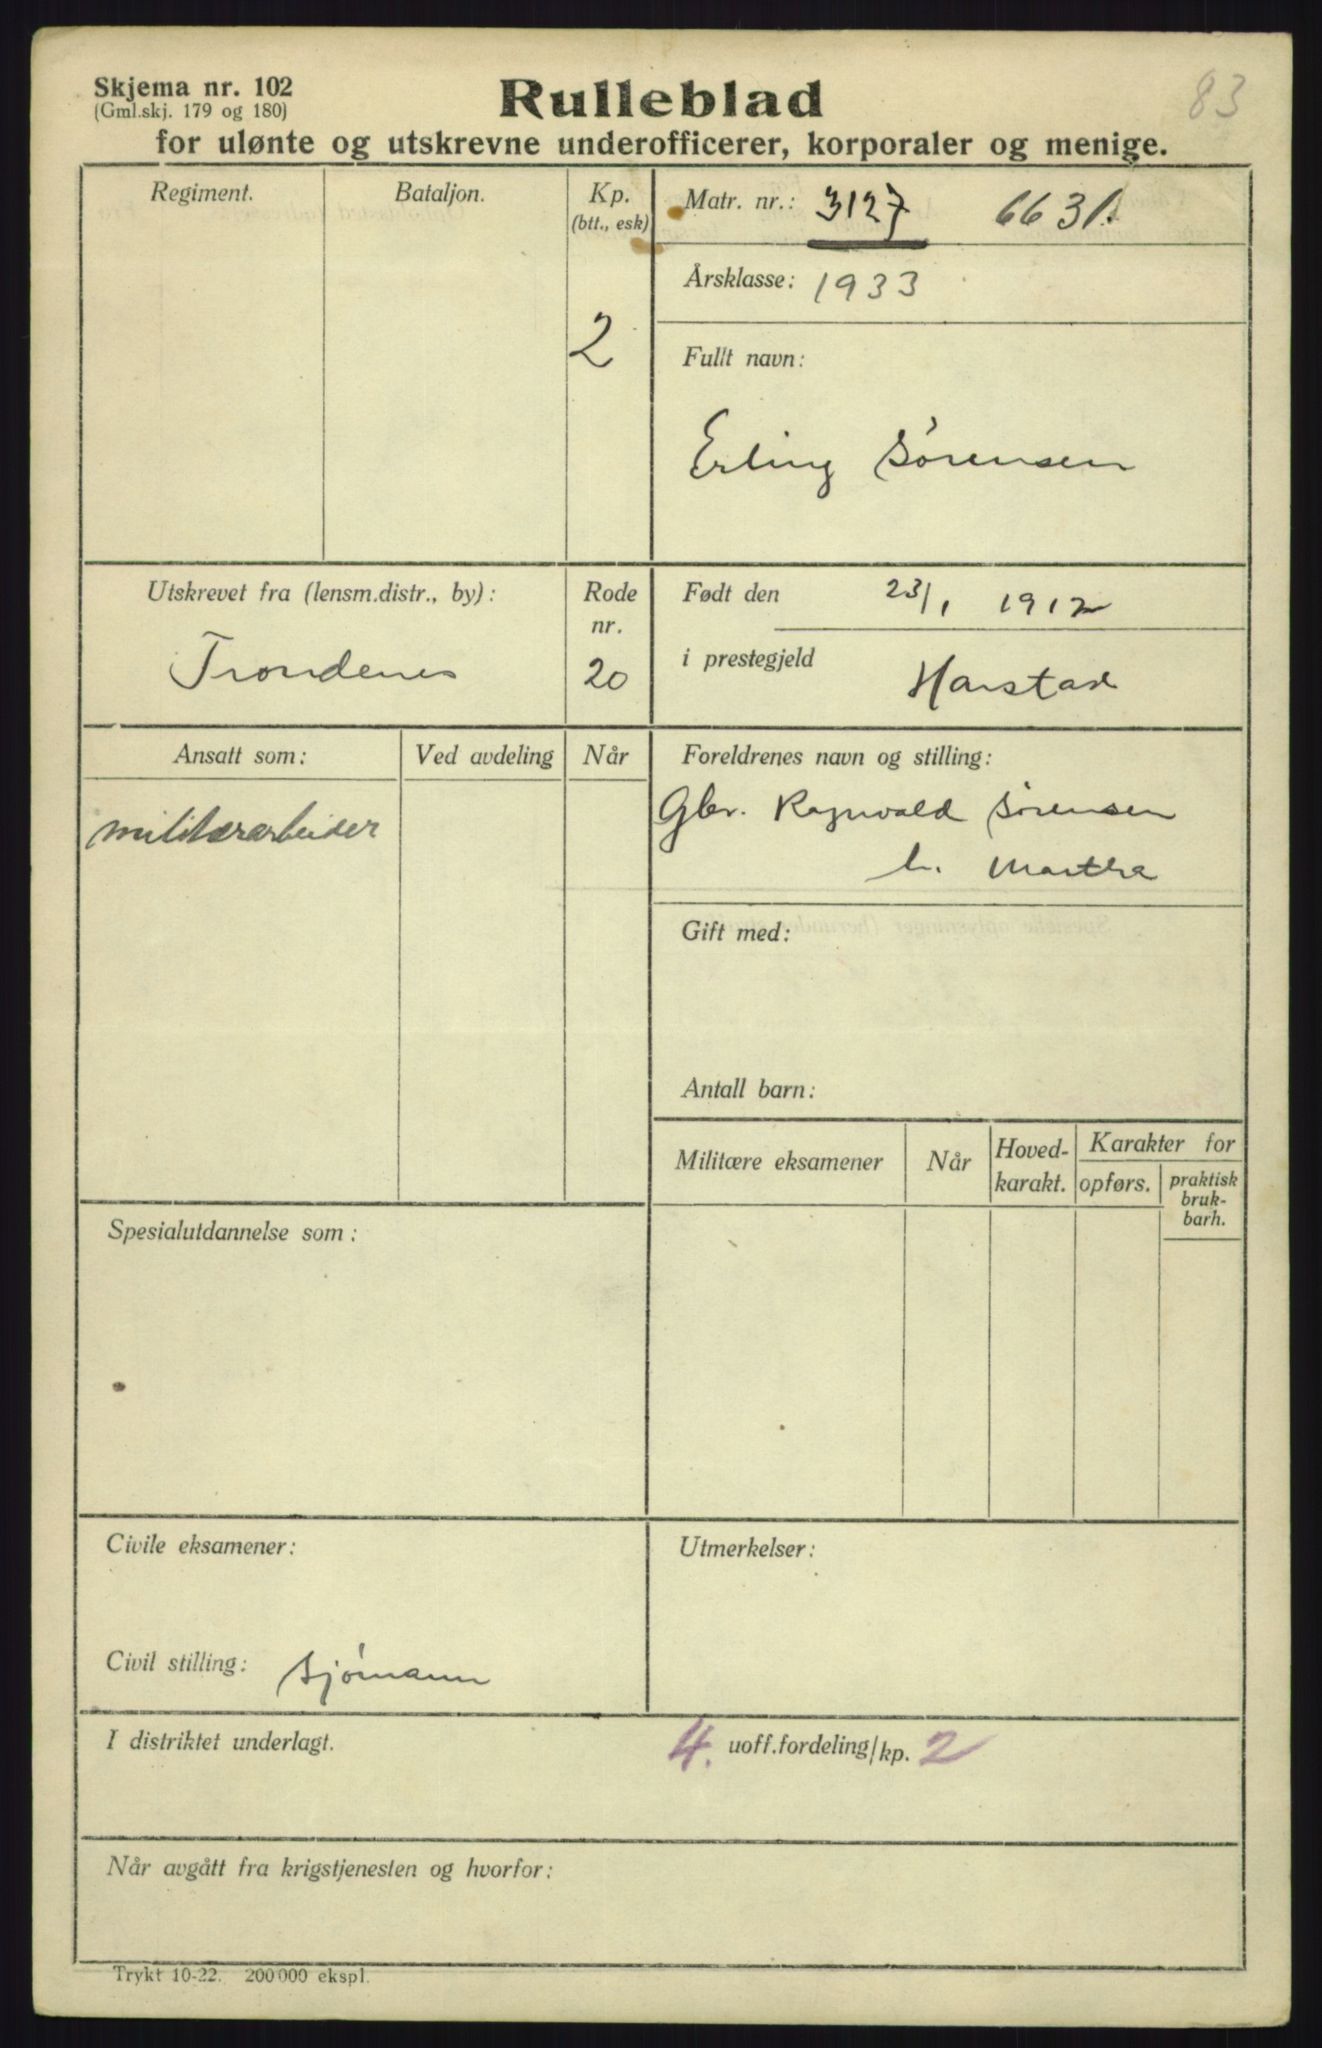 Skjema nr. 102
(Gml.skj. 179 og 180)
Rulleblad
83
for ulønte og utskrevne underofficerer, korporaler og menige.
Regiment.
Bataljon.
Kp.
(btt., esk)
2
Matr. nr.: 3127 6631.
Årsklasse: 1933
Fullt navn:
Erling Sørensen
Utskrevet fra (lensm.distr., by):
Trondenes
Rode
nr.
20
Født den 23/1 1912
i prestegjeld Harstad
Ansatt som:
Ved avdeling
Når
militærarbeider
Foreldrenes navn og stilling:
Gbr. Ragnvald Sørensen
h. Martha
Gift med:
Antall barn:
Militære eksamener
Når
Hoved-
karakt.
Karakter for
opførs.
praktisk
bruk-
barh.
Spesialutdannelse som:
Civile eksamener:
Civil stilling: sjømann
Utmerkelser:
I distriktet underlagt. 4. uoff.fordeling/kp. 2
Når avgått fra krigstjenesten og hvorfor:
Trykt 10-22. 200 000 ekspl.